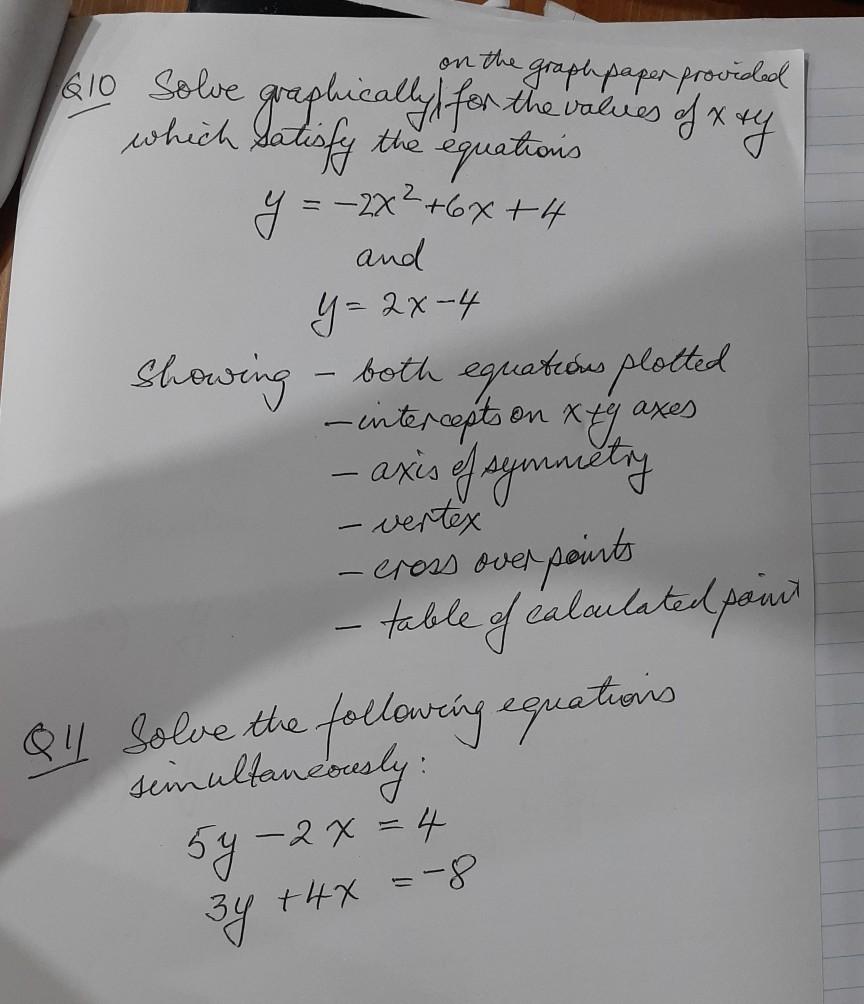 on the graph paper provided
Q10 Solve graphically, for the values of x + y
which satisfy the equations
y = -2x² + 6x + 4
and
y = 2x - 4
Showing - both equations plotted
- intercepts on x + y axes
- axis of symmetry
- vertex
- cross over points
- table of calculated point
Q11 Solve the following equations
simultaneously:
5y - 2x = 4
3y + 4x = -8